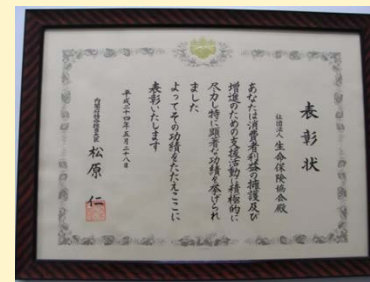 表彰状
社団法人 生命保険協会殿
あなたは消費者利益の擁護及び
増進のための支援活動に積極的に
尽力し特に顕著な功績を挙げられ
ました
よってその功績をたたえここに
表彰いたします
平成二十四年五月二十八日
内閣府特命担当大臣 松原 仁